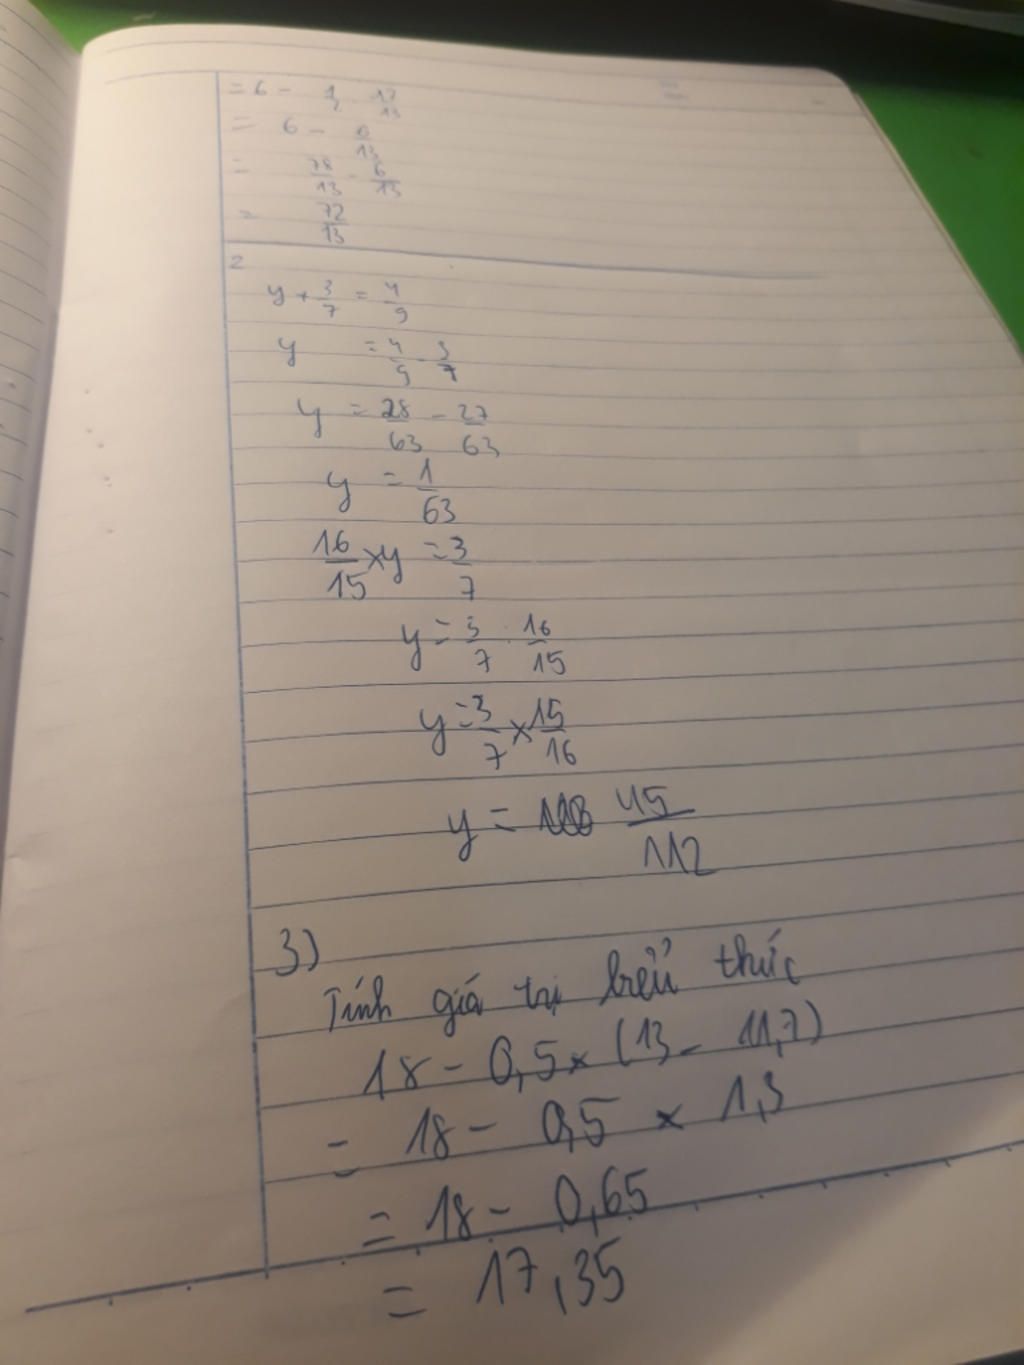 = 6 - 1/2 . 12/13
= 6 - 6/13
= 78/13 - 6/13
= 72/13
2
y + 3/7 = 4/9
y = 4/9 - 3/7
y = 28/63 - 27/63
y = 1/63
16/15 x y = 3/7
y = 3/7 : 16/15
y = 3/7 x 15/16
y = 45/112
3)
Tính giá trị biểu thức
18 - 0,5 x (13 - 11,7)
= 18 - 0,5 x 1,3
= 18 - 0,65
= 17,35